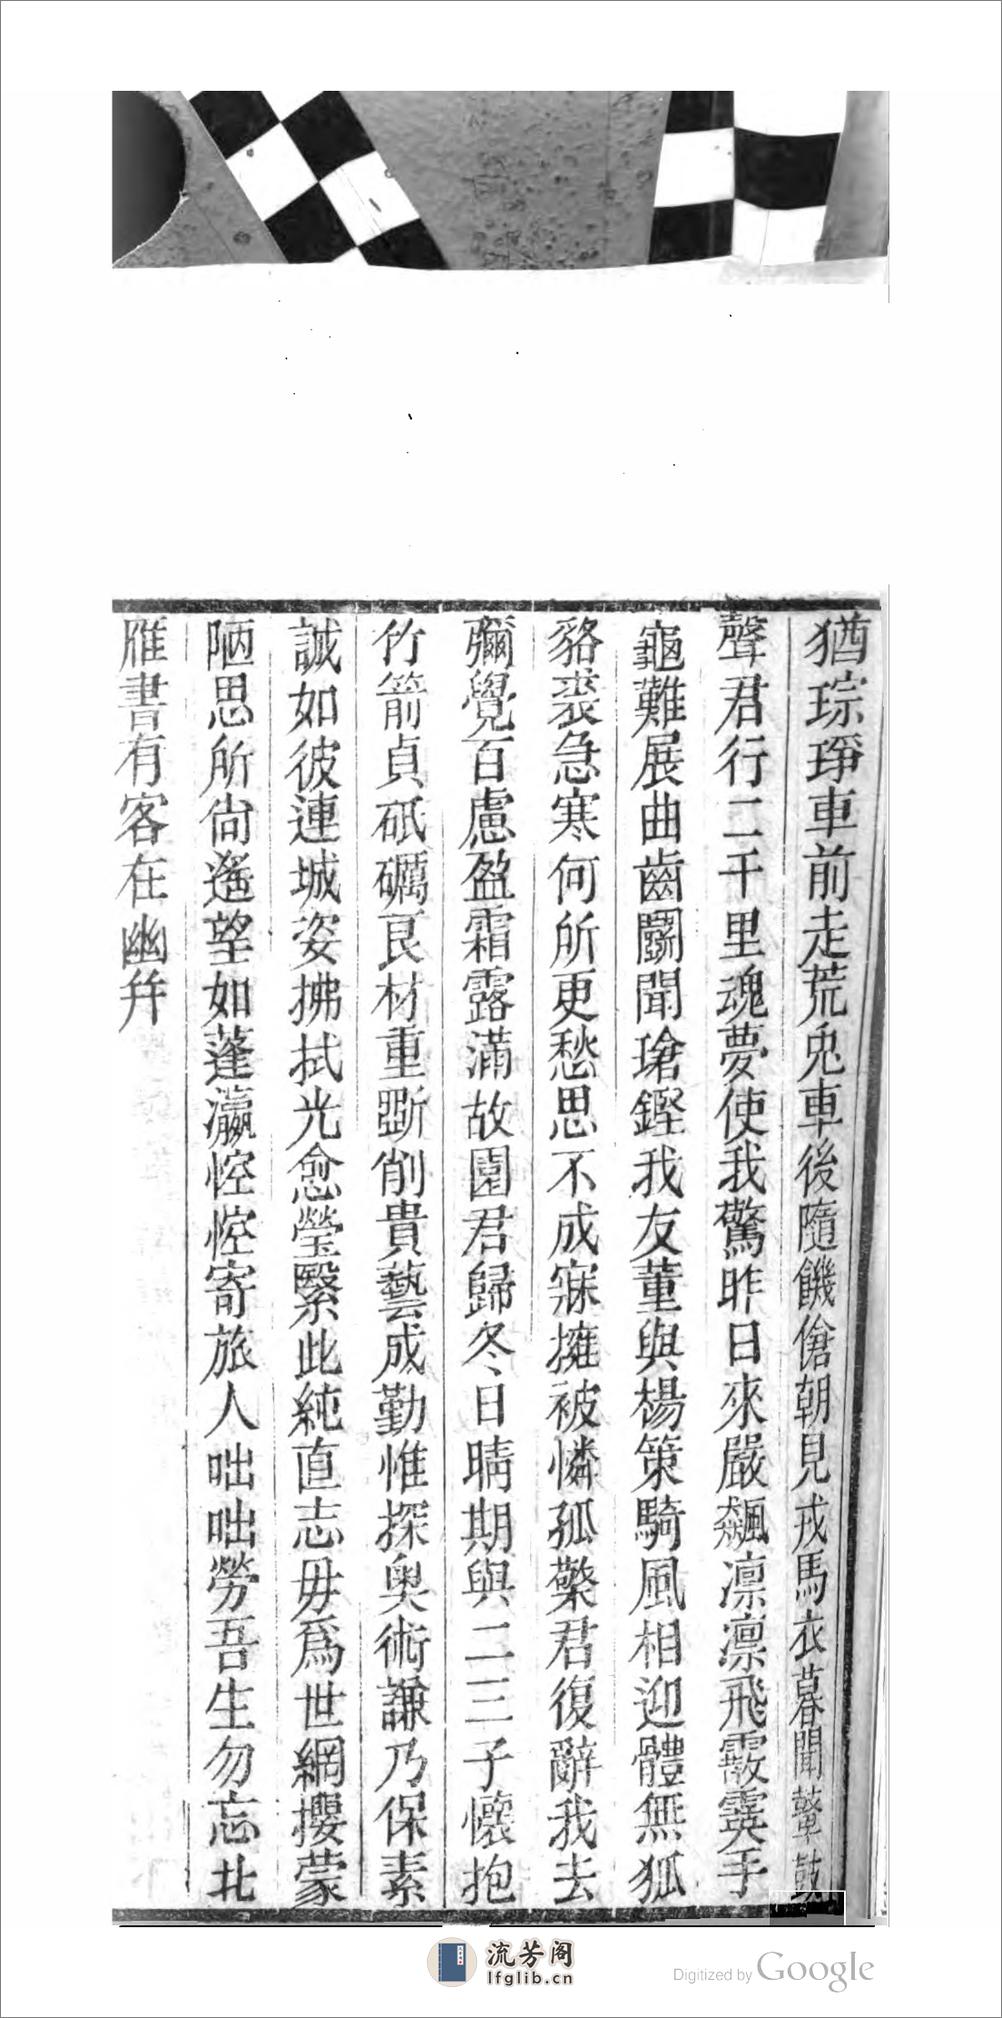 猶琮琤車前走荒兎車後隨饑傖朝見戎馬衣暮聞鼙鼓
聲君行二千里魂夢使我驚昨日來嚴飈凛凛飛霰霙手
龜難展曲齒鬬聞瑲鏗我友董與楊策騎風相迎體無狐
貉裘急寒何所更愁思不成寐擁被憐孤檠君復辭我去
彌覺百慮盈霜露滿故園君歸冬日晴期與二三子懷抱
竹箭貞砥礪良材重斲削貴藝成勤惟探奥術謙乃保素
誠如彼連城姿拂拭光愈瑩繄此純直志毋爲世網攖蒙
陋思所尙遙望如蓬瀛悾悾寄旅人咄咄勞吾生勿忘北
雁書有客在幽幷
流芳阁
lfglib.cn
Digitized by Google